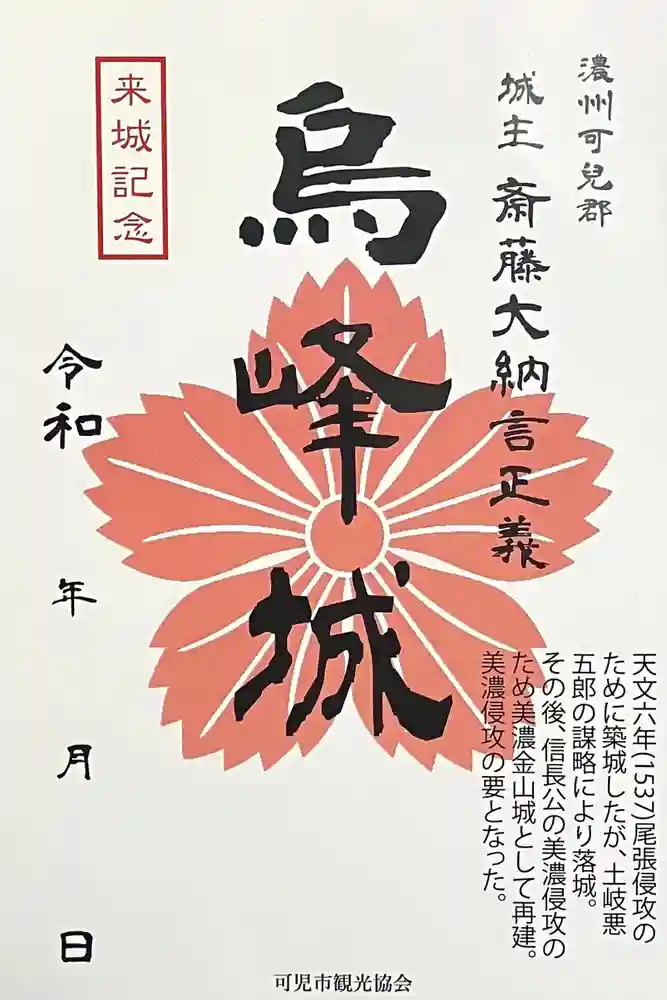 濃州可兒郡
城主 斎藤大納言正義
烏峰城
来城記念
令和 年 月 日
天文六年(1537)尾張侵攻の
ために築城したが、土岐悪
五郎の謀略により落城。
その後、信長公の美濃侵攻の
ため美濃金山城として再建。
美濃侵攻の要となった。
可児市観光協会